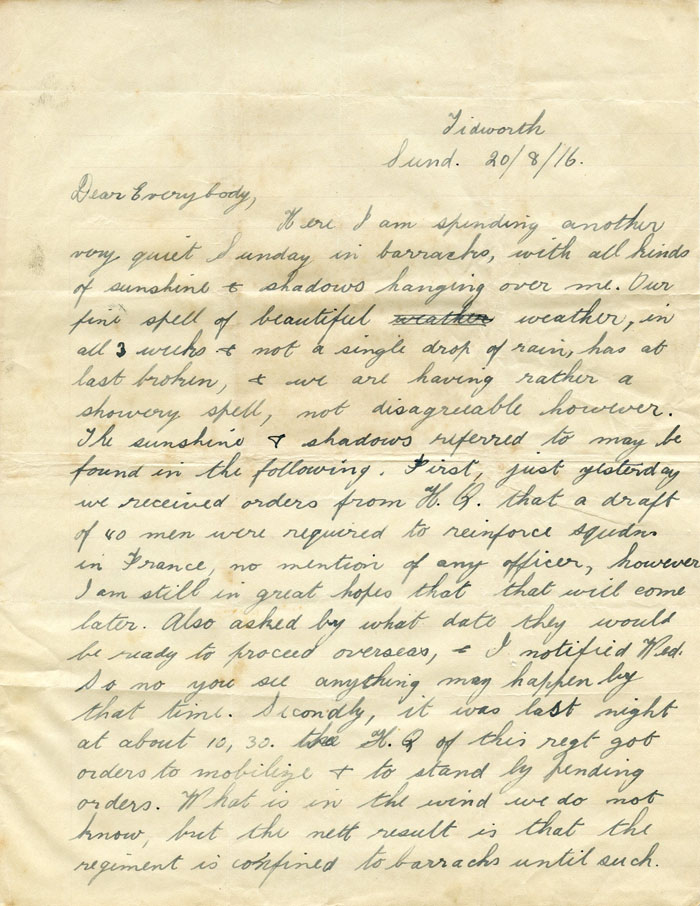 Tidworth
Sund. 20/8/16.
Dear Everybody,
Here I am spending another
very quiet Sunday in barracks, with all kinds
of sunshine & shadows hanging over me. Our
fine spell of beautiful weather weather, in
all 3 weeks & not a single drop of rain, has at
last broken, & we are having rather a
showery spell, not disagreeable however.
The sunshine & shadows referred to may be
found in the following. First, just yesterday
we received orders from H.Q. that a draft
of 40 men were required to reinforce squdns
in France, no mention of any officer, however
I am still in great hopes that that will come
later. Also asked by what date they would
be ready to proceed overseas, & I notified Wed.
So no you see anything may happen by
that time. Secondly, it was last night
at about 10,30. the H.Q of this regt got
orders to mobilize & to stand by pending
orders. What is in the wind we do not
know, but the nett result is that the
regiment is confined to barracks until such.